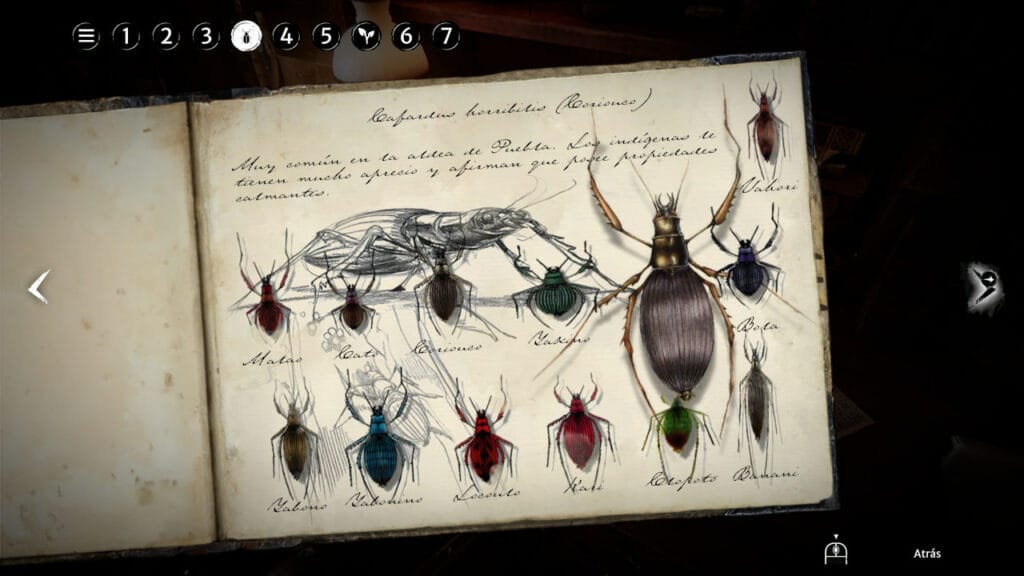 1 2 3 4 5 6 7
Cafardus horribilis (Coriouco)
Muy común en la aldea de Puebla. Los indígenas le
tienen mucho aprecio y afirman que posee propiedades
calmantes.
Vahori
Matao Cato Coriouco Yakino Bota
Yabono Yabonino Locouto Kari Clopoto Banani
Atrás